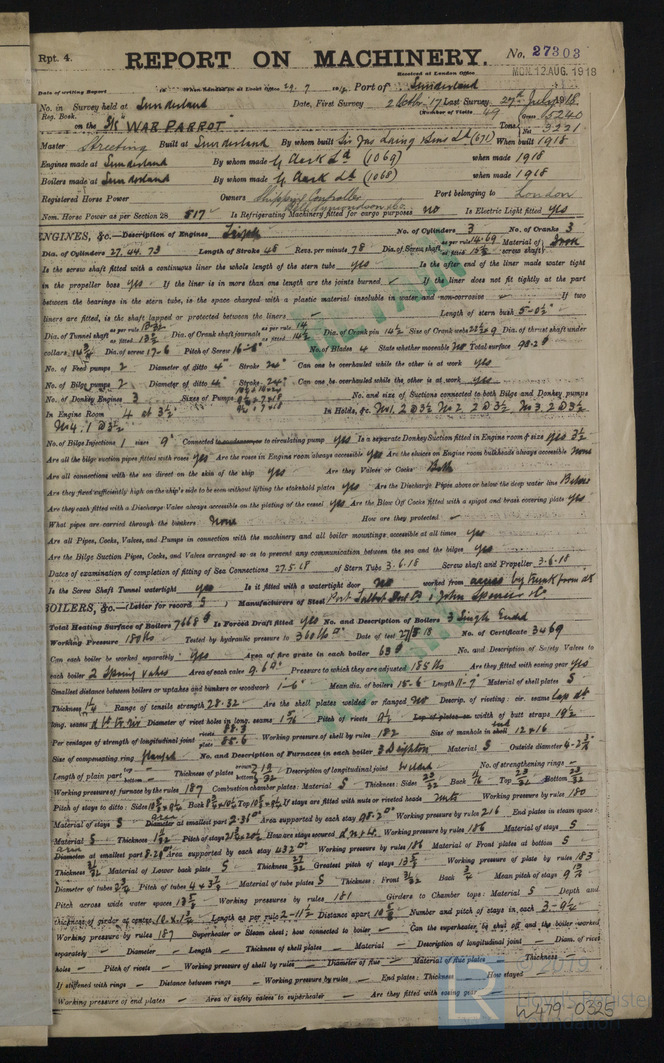 Rpt. 4.
REPORT ON MACHINERY. No. 27303
Received at London Office MON. 12 AUG. 1918
Date of writing Report When handed in at Local Office 29.7 Port of Sunderland
No. in Survey held at Sunderland Date, First Survey 2 Octbr. 17 Last Survey 27th July 1918
Reg. Book. (Number of Visits 49
on the S/S "WAR PARROT" Tons Gross 5240 Net 3221
Master Streeting Built at Sunderland By whom built Sir Jas Laing & Sons Ld (671) When built 1918
Engines made at Sunderland By whom made G Clark Ld (1069) when made 1918
Boilers made at Sunderland By whom made G Clark Ld (1068) when made 1918
Registered Horse Power Owners Shipping Controller Port belonging to London
Nom. Horse Power as per Section 28 517 Is Refrigerating Machinery fitted for cargo purposes no Is Electric Light fitted yes
ENGINES, &c.—Description of Engines Triple No. of Cylinders 3 No. of Cranks 3
Dia. of Cylinders 27. 44. 73 Length of Stroke 48 Revs. per minute 78 Dia. of Screw shaft as per rule 14.69 Material of screw shaft Iron
Is the screw shaft fitted with a continuous liner the whole length of the stern tube yes Is the after end of the liner made water tight
in the propeller boss yes If the liner is in more than one length are the joints burned If the liner does not fit tightly at the part
between the bearings in the stern tube, is the space charged with a plastic material insoluble in water and non-corrosive If two
liners are fitted, is the shaft lapped or protected between the liners Length of stern bush 5-0½"
Dia. of Tunnel shaft as per rule as fitted 13½ Dia. of Crank shaft journals as per rule 14 as fitted 14½ Dia. of Crank pin 14½ Size of Crank webs Dia. of thrust shaft under
collars 14¾ Dia. of screw 17-6 Pitch of Screw 16-6 No. of Blades 4 State whether moveable No Total surface 98.2
No. of Feed pumps 2 Diameter of ditto 4" Stroke 24" Can one be overhauled while the other is at work yes
No. of Bilge pumps 2 Diameter of ditto 4" Stroke 24" Can one be overhauled while the other is at work yes
No. of Donkey Engines 3 Sizes of Pumps No. and size of Suctions connected to both Bilge and Donkey pumps
In Engine Room 4 at 3½" In Holds, &c. No1. 2 @ 3½ No 2 2 @ 3½ No 3. 2 @ 3½
No 4: 1 @ 3½"
No. of Bilge Injections 1 sizes 9" Connected to circulating pump yes Is a separate Donkey Suction fitted in Engine room & size yes 3½
Are all the bilge suction pipes fitted with roses yes Are the roses in Engine room always accessible yes Are the sluices on Engine room bulkheads always accessible None
Are all connections with the sea direct on the skin of the ship yes Are they Valves or Cocks Both
Are they fixed sufficiently high on the ship's side to be seen without lifting the stokehold plates yes Are the Discharge Pipes above or below the deep water line Below
Are they each fitted with a Discharge Valve always accessible on the plating of the vessel yes Are the Blow Off Cocks fitted with a spigot and brass covering plate yes
What pipes are carried through the bunkers None How are they protected
Are all Pipes, Cocks, Valves, and Pumps in connection with the machinery and all boiler mountings accessible at all times yes
Are the Bilge Suction Pipes, Cocks, and Valves arranged so as to prevent any communication between the sea and the bilges yes
Dates of examination of completion of fitting of Sea Connections 27.5.18 of Stern Tube 3.6.18 Screw shaft and Propeller 3.6.18
Is the Screw Shaft Tunnel watertight yes Is it fitted with a watertight door no worked from access by trunk from dk
BOILERS, &c.—(Letter for record S) Manufacturers of Steel Port Talbot Steel Co & John Spencer & Co
Total Heating Surface of Boilers 7668 Is Forced Draft fitted yes No. and Description of Boilers 3 Single Ended
Working Pressure 180 lbs Tested by hydraulic pressure to 360 lbs Date of test 27/5/18 No. of Certificate 3469
Can each boiler be worked separately yes Area of fire grate in each boiler 63 No. and Description of Safety Valves to
each boiler 2 Spring valves Area of each valve 9.6 Pressure to which they are adjusted 185 lbs Are they fitted with easing gear yes
Smallest distance between boilers or uptakes and bunkers or woodwork 1-6" Mean dia. of boilers 15-6 Length 11-7" Material of shell plates S
Thickness 1¼ Range of tensile strength 28.32 Are the shell plates welded or flanged No Descrip. of riveting: cir. seams Lap
long. seams Diameter of rivet holes in long. seams 1 5/16 Pitch of rivets 9½ width of butt straps 19½
Per centages of strength of longitudinal joint rivets 88.3 plate 85.6 Working pressure of shell by rules 182 Size of manhole in shell 12 x 16
Size of compensating ring flanged No. and Description of Furnaces in each boiler 3 Deighton Material S Outside diameter 4-2
Length of plain part top bottom Thickness of plates crown bottom 19/32 Description of longitudinal joint Weld No. of strengthening rings
Working pressure of furnace by the rules 187 Combustion chamber plates: Material S Thickness: Sides 23/32 Back Top 23/32 Bottom 23/32
Pitch of stays to ditto: Sides Back Top If stays are fitted with nuts or riveted heads Nuts Working pressure by rules 180
Material of stays S area at smallest part 2.36 Area supported by each stay 98.2 Working pressure by rules 216 End plates in steam space:
Material S Thickness Pitch of stays How are stays secured Working pressure by rules 186 Material of stays S
area at smallest part 8.29 Area supported by each stay 432 Working pressure by rules 186 Material of Front plates at bottom S
Thickness 31/32 Material of Lower back plate S Thickness 27/32 Greatest pitch of stays 13¾ Working pressure of plate by rules 183
Diameter of tubes 2¾ Pitch of tubes Material of tube plates S Thickness: Front 31/32 Back ¾ Mean pitch of stays
Pitch across wide water spaces 13 Working pressures by rules 181 Girders to Chamber tops: Material S Depth and
thickness of girder at centre Length as per rule 2-11½ Distance apart Number and pitch of stays in each 3-9½
Working pressure by rules 187 Superheater or Steam chest; how connected to boiler Can the superheater be shut off and the boiler worked
separately Diameter Length Thickness of shell plates Material Description of longitudinal joint Diam. of rivet
holes Pitch of rivets Working pressure of shell by rules Diameter of flue Material of flue plates Thickness
If stiffened with rings Distance between rings Working pressure by rules End plates: Thickness How stayed
Working pressure of end plates Area of safety valves to superheater Are they fitted with easing gear
2019
LR Lloyd's Register Foundation
W479-0325